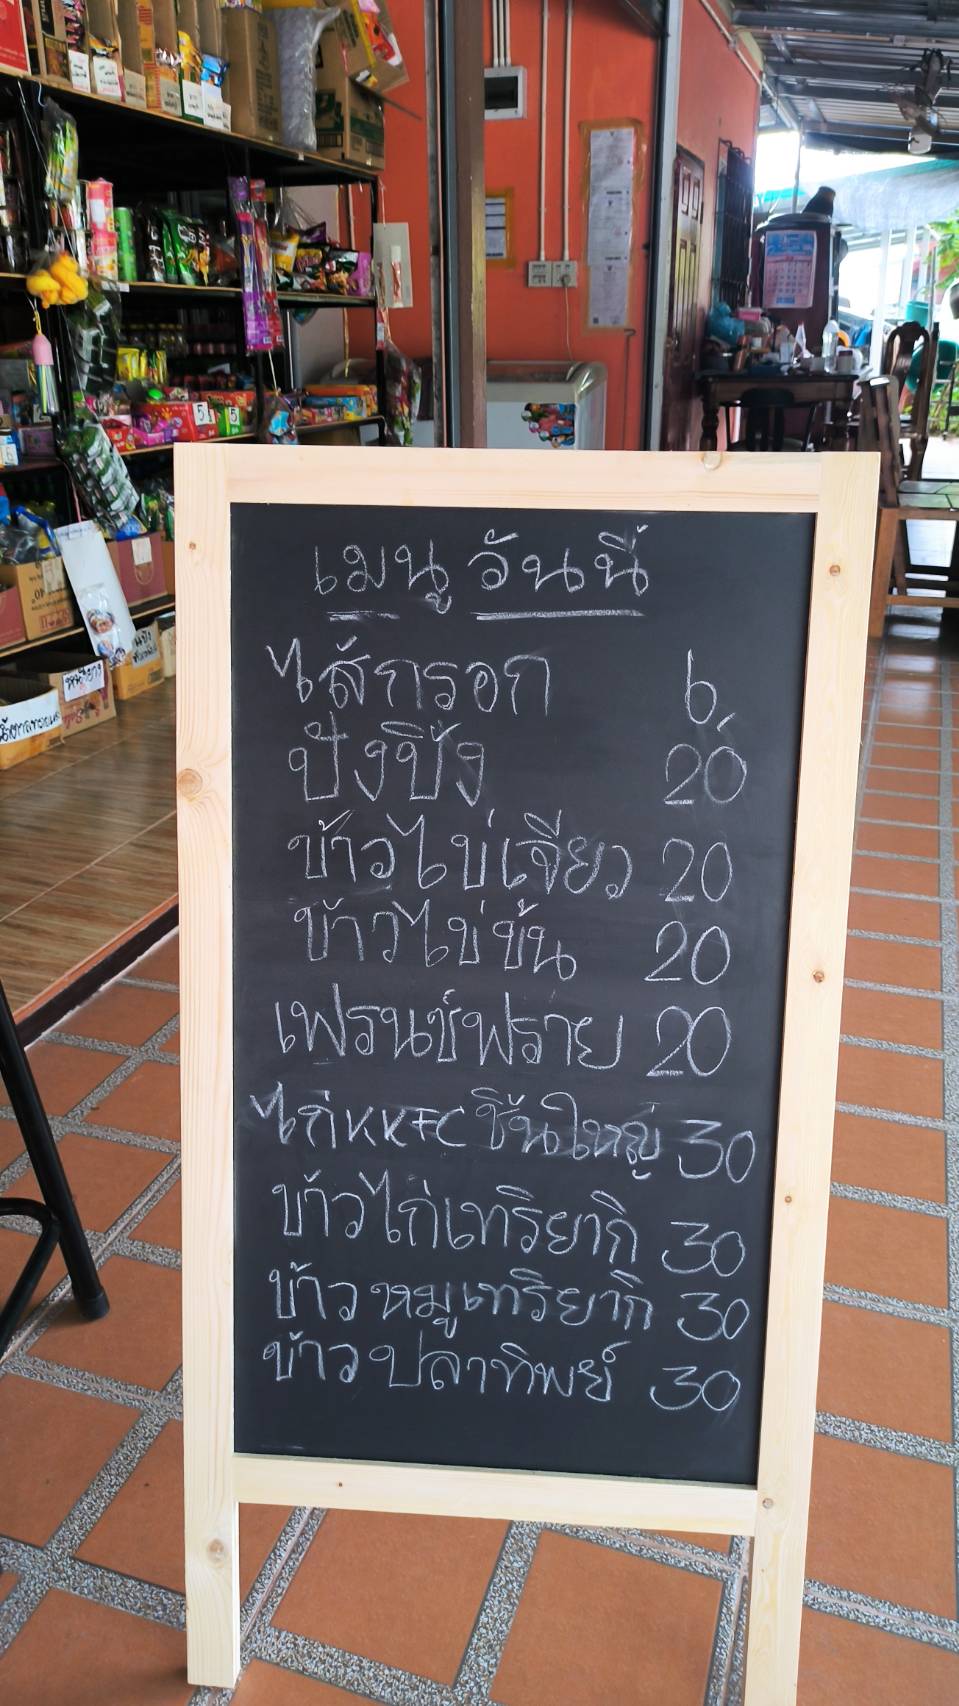 เมนู วันนี้
ไส้กรอก 6
ปังปิ้ง 20
ข้าวไข่เจียว 20
ข้าวไข่ข้น 20
เฟรนช์ฟราย 20
ไก่KKFC ชิ้นใหญ่ 30
ข้าวไก่เทริยากิ 30
ข้าว หมูเทริยากิ 30
ข้าว ปลาทิพย์ 30
5
5